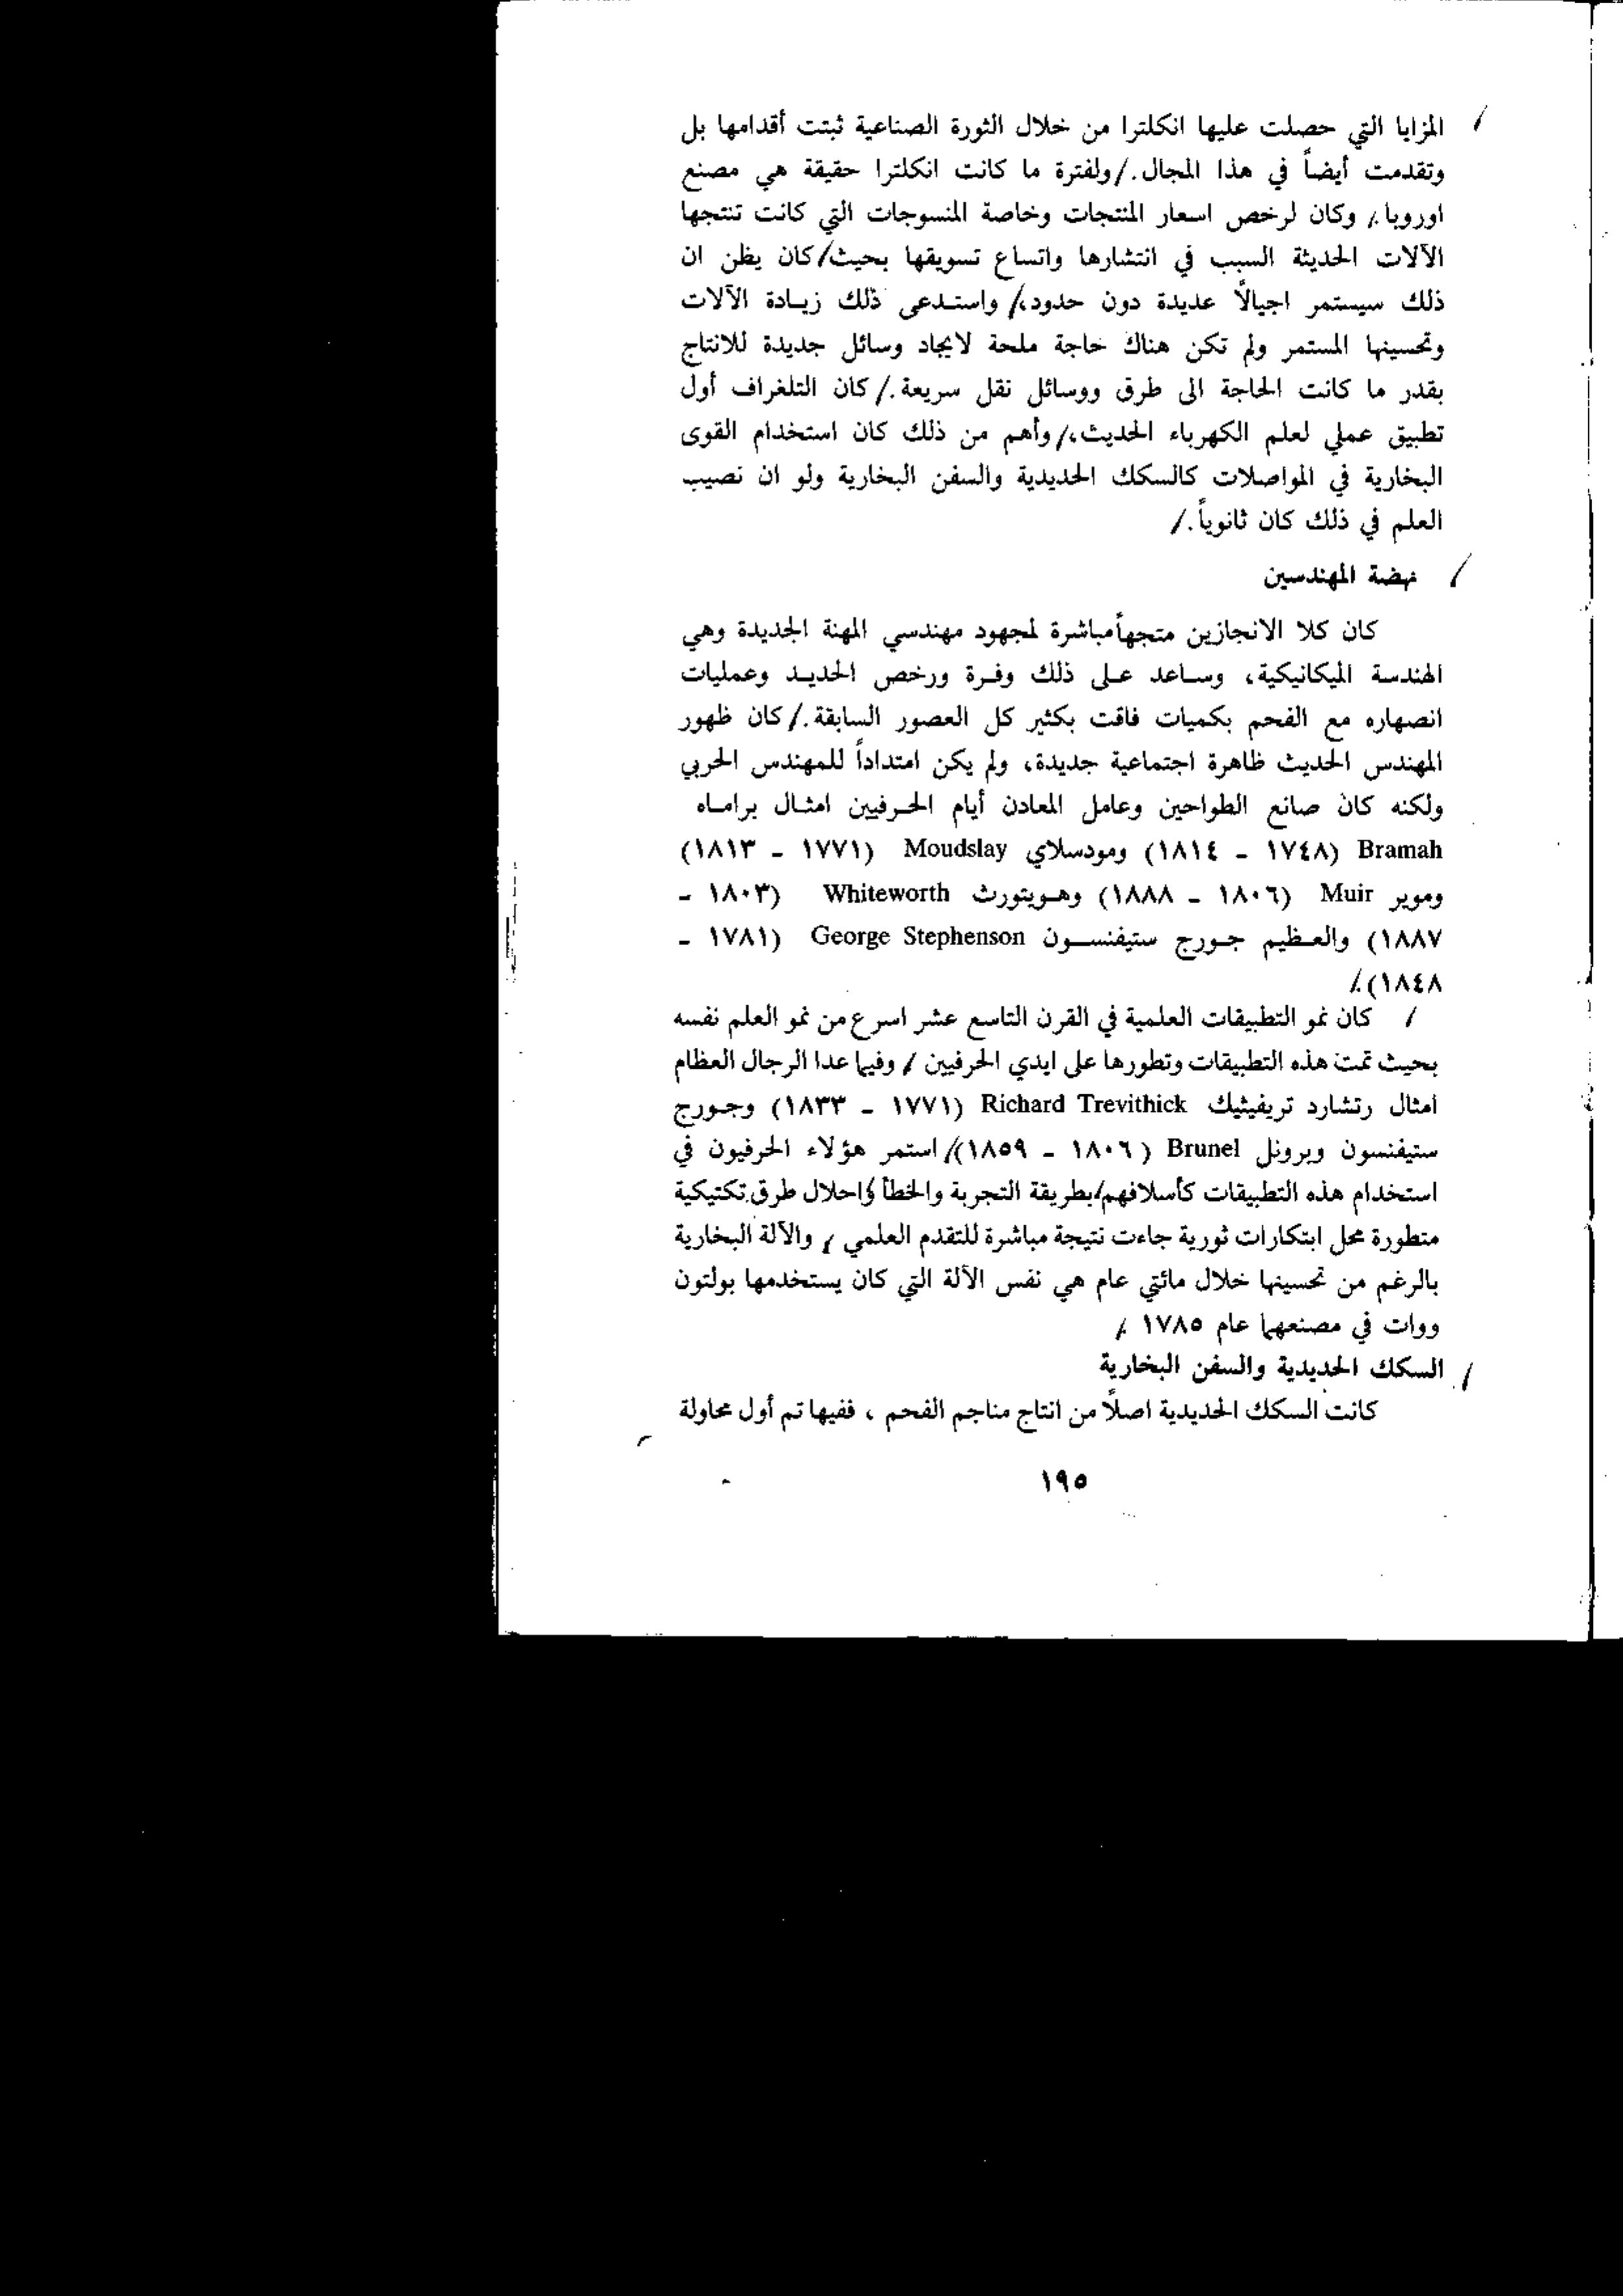 المزايا التي حصلت عليها انكلترا من خلال الثورة الصناعية ثبتت أقدامها بل
وتقدمت أيضاً في هذا المجال./ ولفترة ما كانت انكلترا حقيقة هي مصنع
اوروبا/. وكان لرخص اسعار المنتجات وخاصة المنسوجات التي كانت تنتجها
الآلات الحديثة السبب في انتشارها واتساع تسويقها بحيث/ كان يظن ان
ذلك سيستمر اجيالاً عديدة دون حدود،/ واستدعى ذلك زيادة الآلات
وتحسينها المستمر ولم تكن هناك حاجة ملحة لايجاد وسائل جديدة للانتاج
بقدر ما كانت الحاجة الى طرق ووسائل نقل سريعة./ كان التلغراف أول
تطبيق عملي لعلم الكهرباء الحديث،/ وأهم من ذلك كان استخدام القوى
البخارية في المواصلات كالسكك الحديدية والسفن البخارية ولو ان نصيب
العلم في ذلك كان ثانوياً./
نهضة المهندسين
كان كلا الانجازين متجهاً مباشرة لمجهود مهندسي المهنة الجديدة وهي
الهندسة الميكانيكية، وساعد على ذلك وفرة ورخص الحديد وعمليات
انصهاره مع الفحم بكميات فاقت بكثير كل العصور السابقة./ كان ظهور
المهندس الحديث ظاهرة اجتماعية جديدة، ولم يكن امتداداً للمهندس الحربي
ولكنه كان صانع الطواحين وعامل المعادن أيام الحرفيين امثال براماه
Bramah (١٧٤٨ - ١٨١٤) ومودسلاي Moudslay (١٧٧١ - ١٨١٣)
وموير Muir (١٨٠٦ - ١٨٨٨) وهويتورث Whiteworth (١٨٠٣ -
١٨٨٧) والعظيم جورج ستيفنسون George Stephenson (١٧٨١ -
١٨٤٨)./
/ كان نمو التطبيقات العلمية في القرن التاسع عشر اسرع من نمو العلم نفسه
بحيث تمت هذه التطبيقات وتطورها على ايدي الحرفيين / وفيما عدا الرجال العظام
امثال رتشارد تريفيثيك Richard Trevithick (١٧٧١ - ١٨٣٣) وجورج
ستيفنسون وبرونل Brunel (١٨٠٦ - ١٨٥٩)/ استمر هؤلاء الحرفيون في
استخدام هذه التطبيقات كأسلافهم/ بطريقة التجربة والخطأ واحلال طرق تكتيكية
متطورة محل ابتكارات ثورية جاءت نتيجة مباشرة للتقدم العلمي / والآلة البخارية
بالرغم من تحسينها خلال مائتي عام هي نفس الآلة التي كان يستخدمها بولتون
ووات في مصنعهما عام ١٧٨٥ ./
السكك الحديدية والسفن البخارية
كانت السكك الحديدية اصلاً من انتاج مناجم الفحم ، ففيها تم أول محاولة
١٩٥